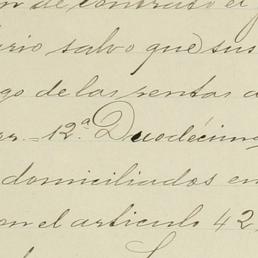 n de contrato el
ario salvo que sus
go de las rentas a
12.ª Duodécima
domiciliados en
on el articulo 42,